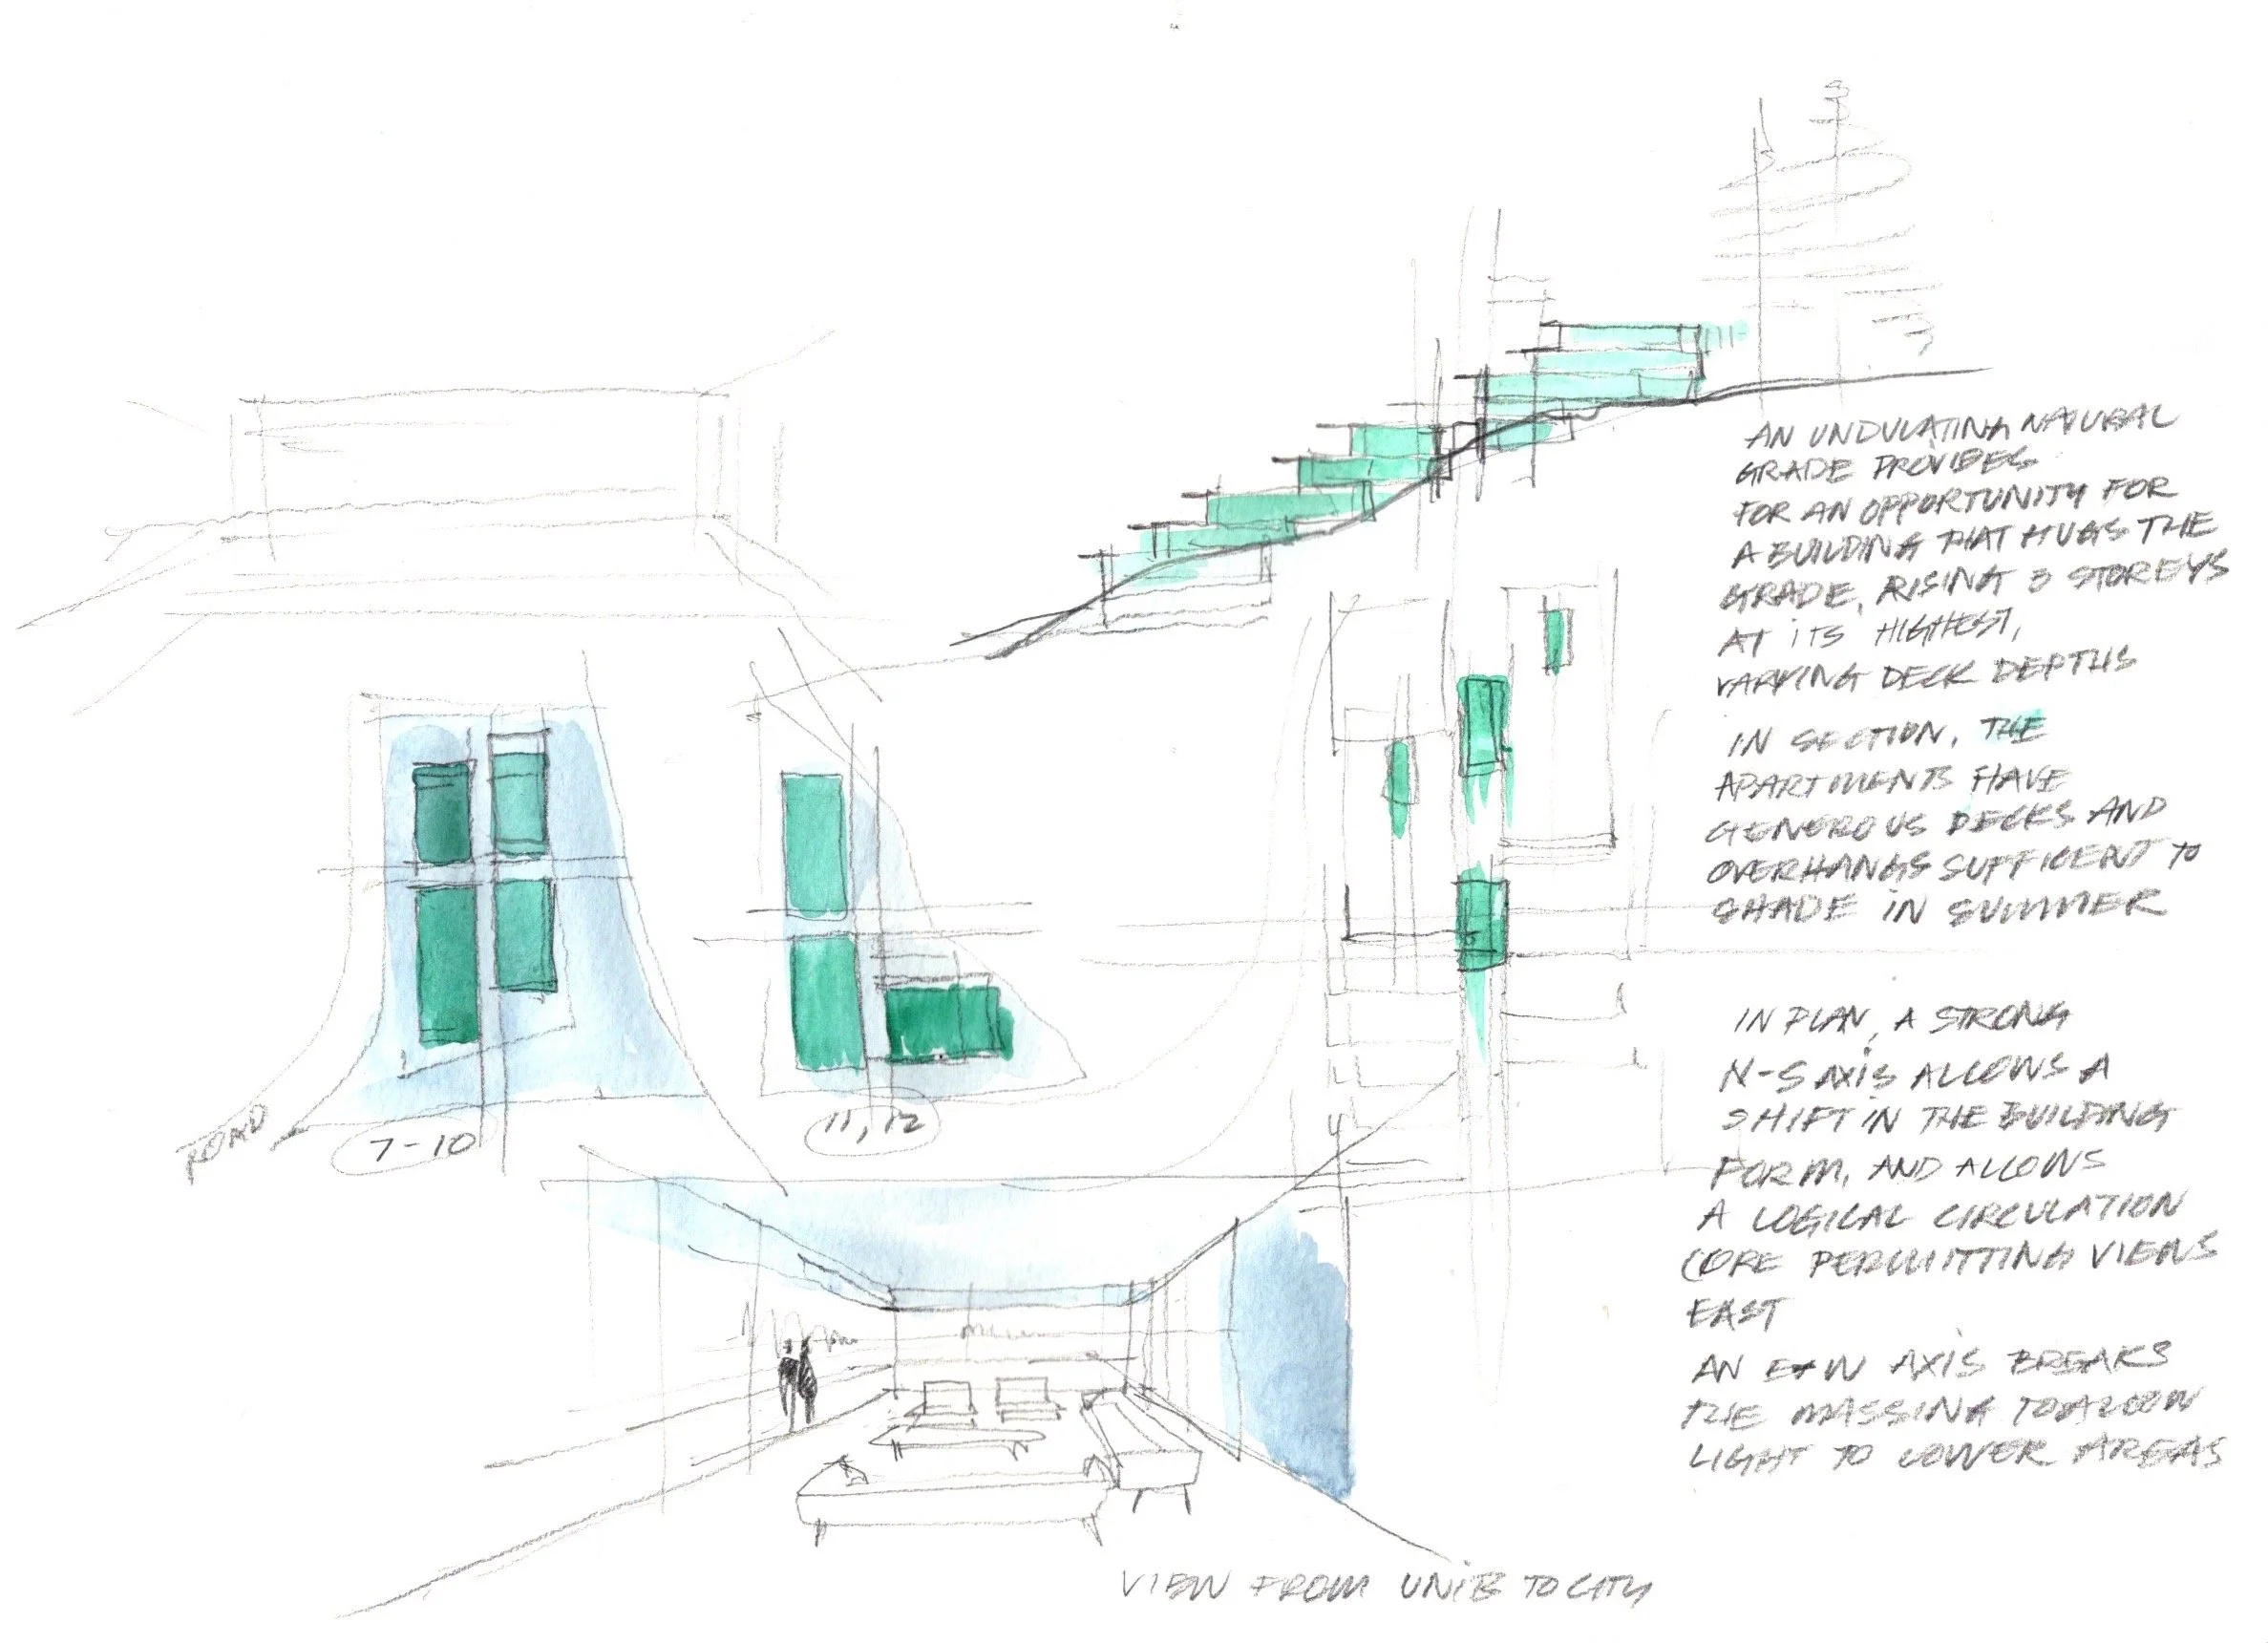 AN UNDULATING NATURAL
GRADE PROVIDES
FOR AN OPPORTUNITY FOR
A BUILDING THAT HUGS THE
GRADE, RISING 3 STOREYS
AT ITS HIGHEST,
VARYING DECK DEPTHS
IN SECTION, THE
APARTMENTS HAVE
GENEROUS DECKS AND
OVERHANGS SUFFICENT TO
SHADE IN SUMMER
IN PLAN, A STRONG
N-S AXIS ALLOWS A
SHIFT IN THE BUILDING
FORM, AND ALLOWS
A LOGICAL CIRCULATION
CORE PERMITTING VIEWS
EAST
AN E-W AXIS BREAKS
THE MASSING TO ALLOW
LIGHT TO LOWER AREAS
ROAD
7-10
11, 12
VIEW FROM UNITS TO CITY